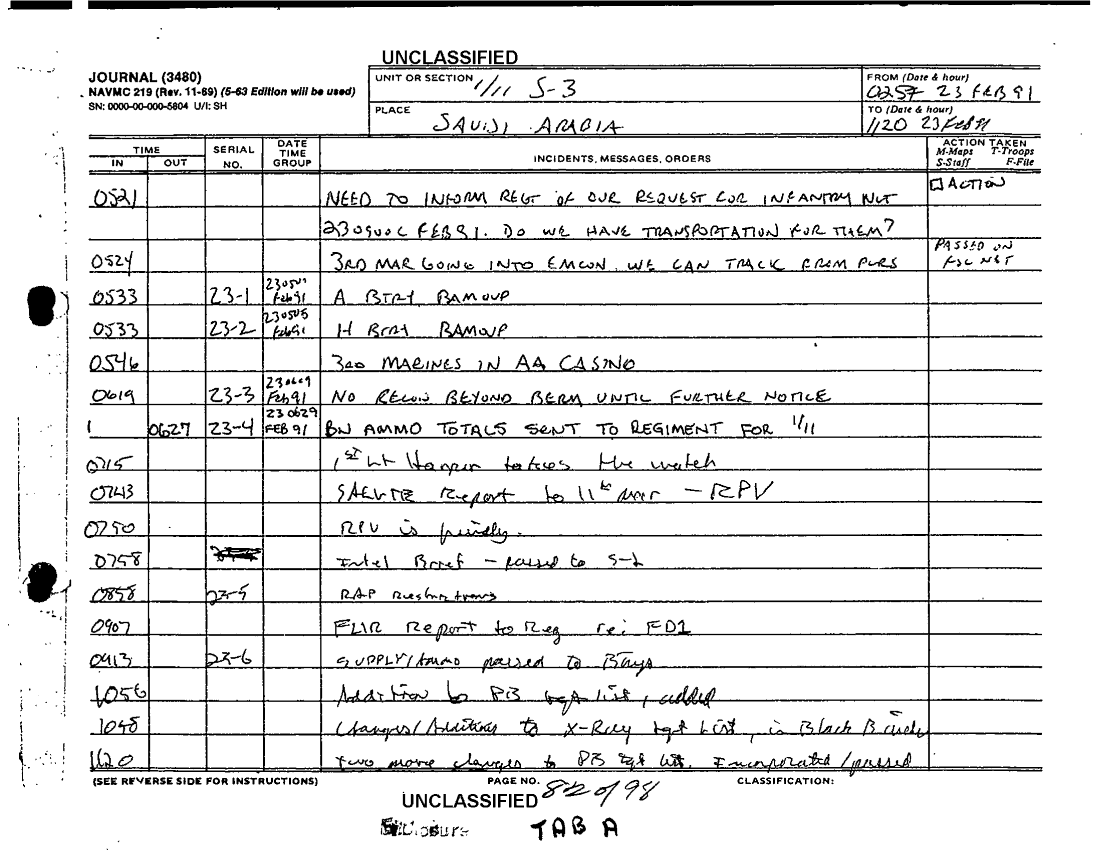 UNCLASSIFIED
JOURNAL (3480)
NAVMC 219 (Rev. 11-69) (5-63 Edition will be used)
SN: 0000-00-000-5804 U/I: SH
UNIT OR SECTION 1/11 S-3
PLACE SAUDI ARABIA
FROM (Date & hour) 0257 23 FEB 91
TO (Date & hour) 1120 23 FEB 91
TIME IN OUT SERIAL NO. DATE TIME GROUP INCIDENTS, MESSAGES, ORDERS ACTION TAKEN M-Maps T-Troops S-Staff F-File
0521 NEED TO INFORM REGT OF OUR REQUEST FOR INFANTRY NLT ACTION
230900C FEB 91. DO WE HAVE TRANSPORTATION FOR THEM?
0524 3RD MAR GOING INTO EMCON. WE CAN TRACK FROM PLRS PASSED ON FSC NET
0533 23-1 Feb 91 A BTRY BAMOUP
0533 23-2 230505 Feb 91 H BTRY BAMOUP
0546 3RD MARINES IN AA CASINO
0619 23-3 230619 Feb 91 NO RECON BEYOND BERM UNTIL FURTHER NOTICE
0627 23-4 230629 FEB 91 BN AMMO TOTALS SENT TO REGIMENT FOR 1/11
0715 1ST Lt Harper takes the watch
0743 SALUTE Report to 11th Mar - RPV
0750 RPV is friendly.
0758 Intel Brief - passed to S-2
0858 23-5 RAP Restrictions
0907 FLIR Report to Reg re: FD1
0913 23-6 SUPPLY/Ammo passed to Btrys
1056 Addition to PB tgt list, added
1058 Changes/Additions to X-Ray tgt list, in Black Binder
1120 two more changes to PB tgt list. Incorporated/passed
(SEE REVERSE SIDE FOR INSTRUCTIONS) PAGE NO. 82 of 98 CLASSIFICATION:
UNCLASSIFIED
Enclosure TAB A